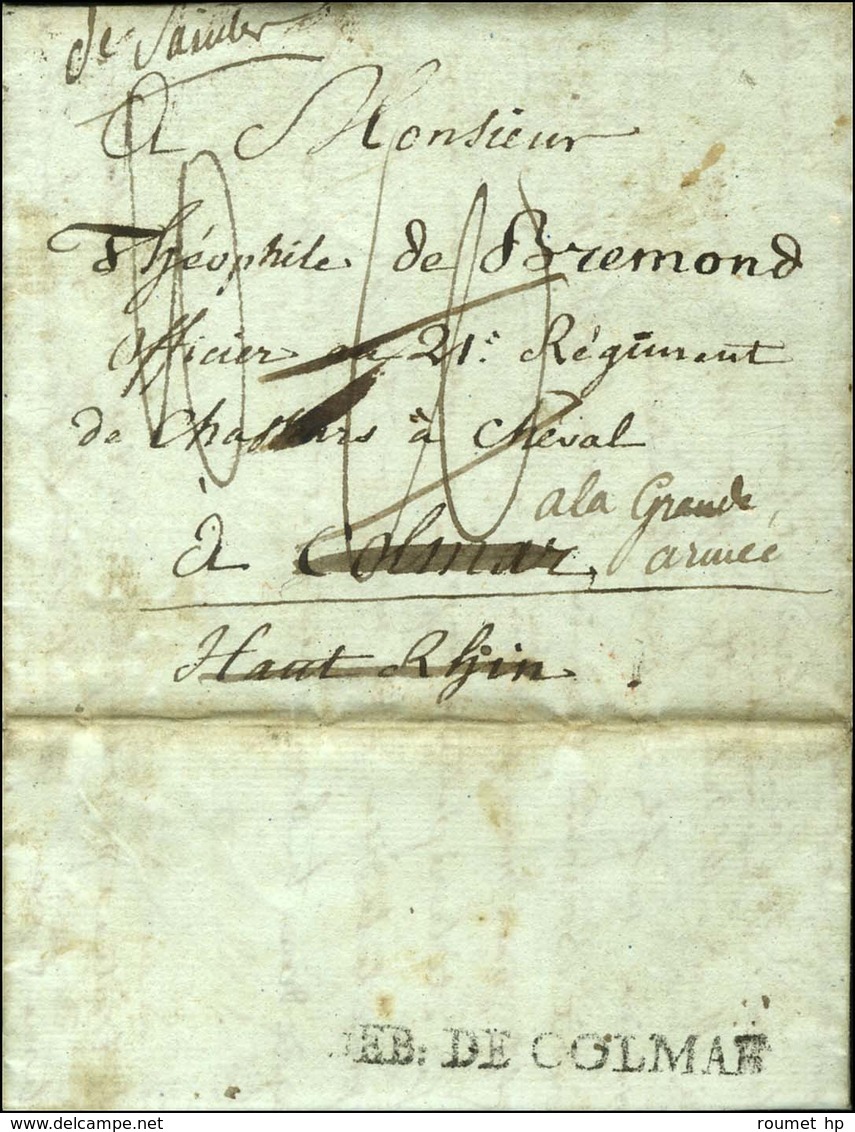 de Saintes
A Monsieur
Théophile de Bremond
officier au 21e. Régiment
de Chasseurs à Cheval
à Colmar, a la Grande
armée
Haut Rhjin
DEB: DE COLMAR
roumet hp